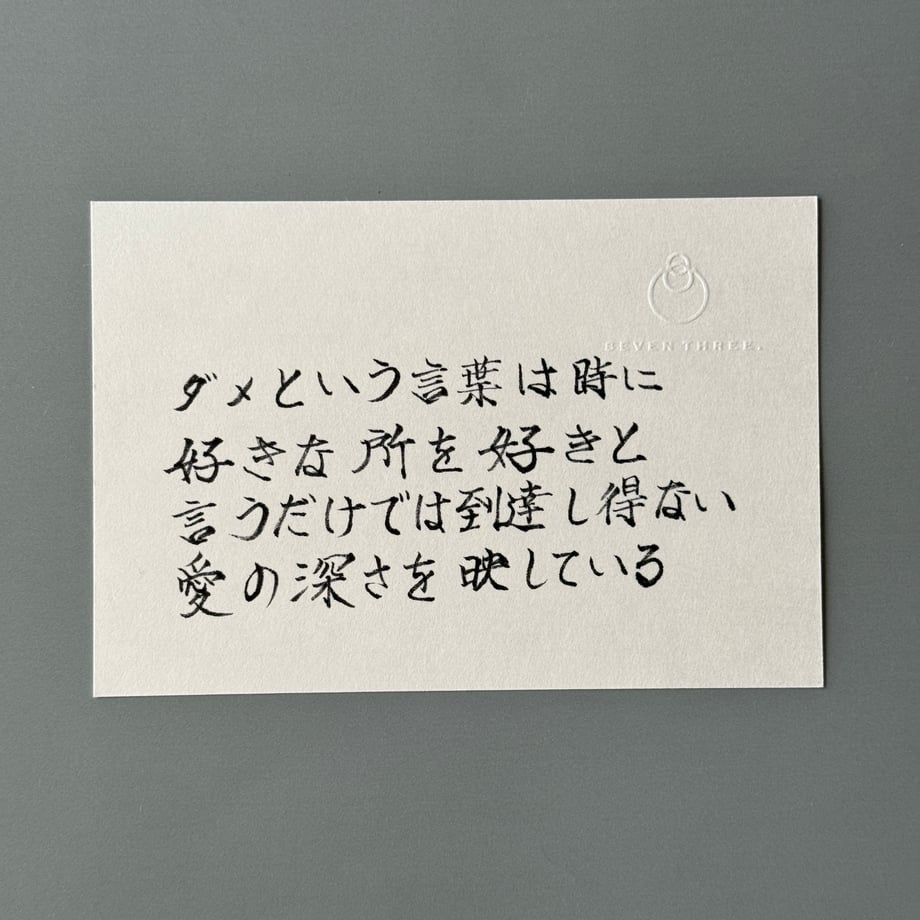 SEVEN THREE.
ダメという言葉は時に
好きな所を好きと
言うだけでは到達し得ない
愛の深さを映している